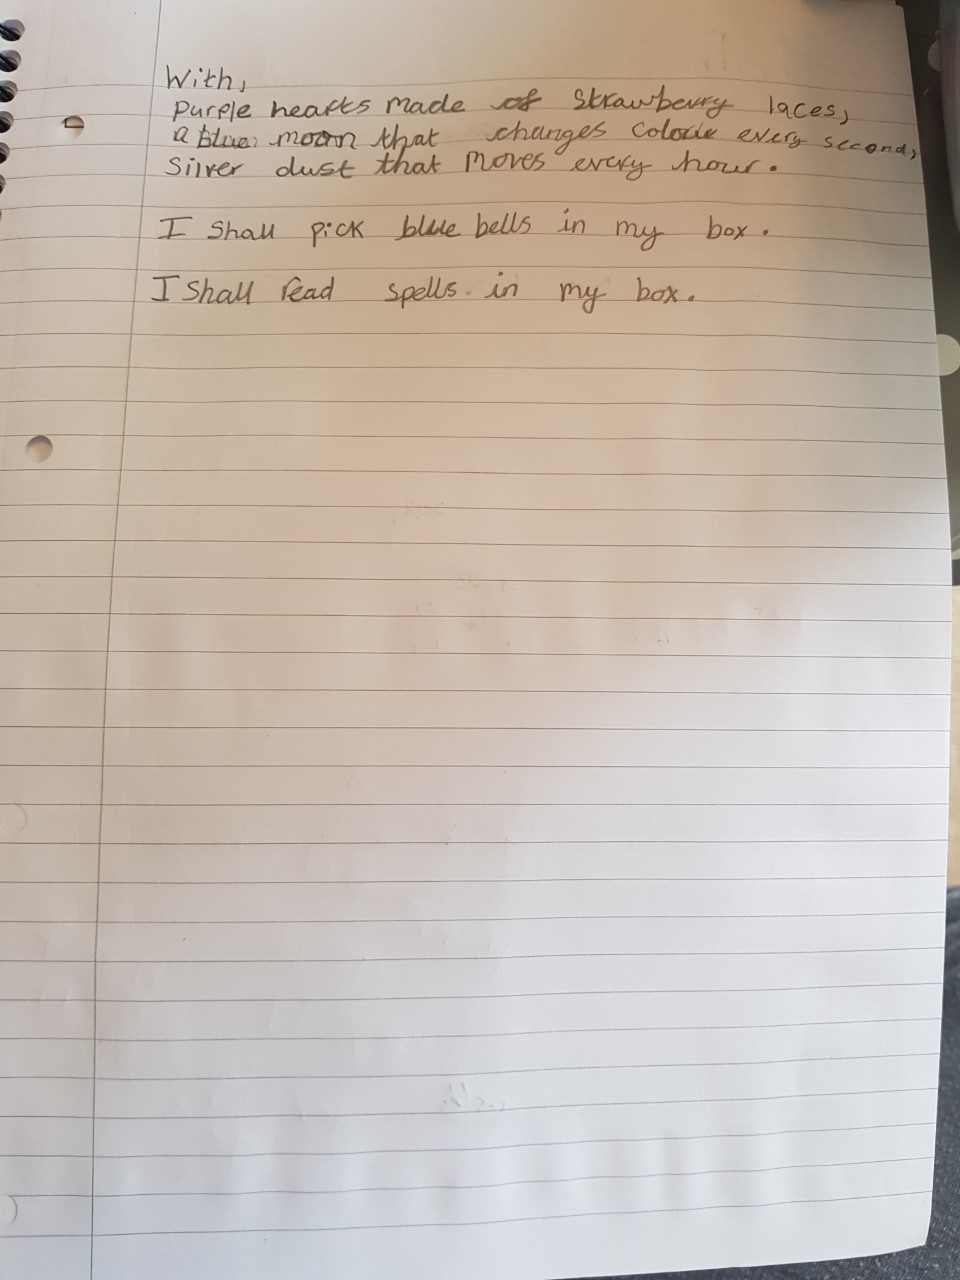 With,
purple hearts made of strawberry laces,
a blue moon that changes every second,
Silver dust that moves every hour.
I shall pick blue bells in my box.
I shall read spells in my box.